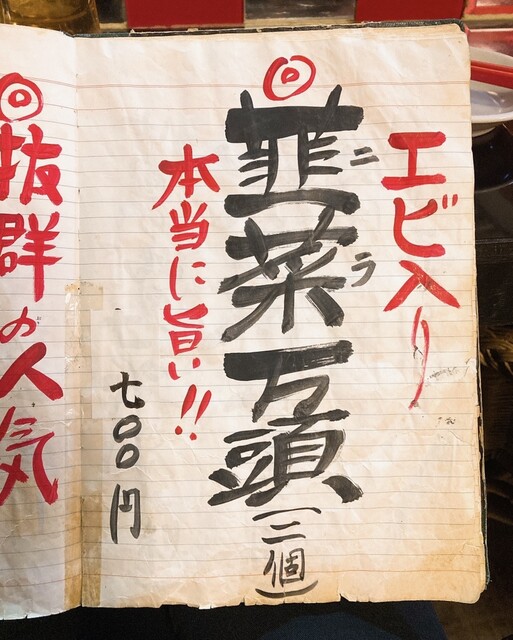 エビ入り
◎韮菜万頭(三個)
ニラ
本当に旨い!!
七〇〇円
◎抜群の人気